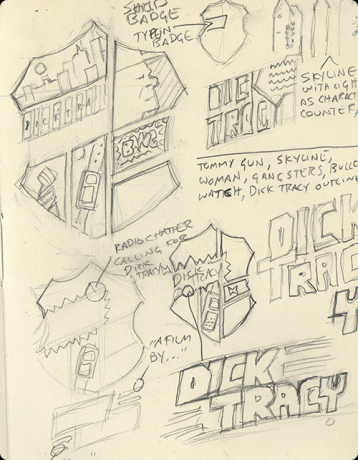 SHIELD
BADGE
TYP ON
BADGE
DICK
TRACY
SKYLINE
WITH LIGH
AS CHARACT
COUNTER
DICKTRA
TOMMY GUN, SKYLINE,
WOMAN, GANGSTERS, BULLE
WATCH, DICK TRACY OUTLINE
RADIO CHATTER
CALLING FOR
DICK
TRACY
DICK
TRACY
DICK
TRACY
"A FILM
BY..."
DICK
TRACY